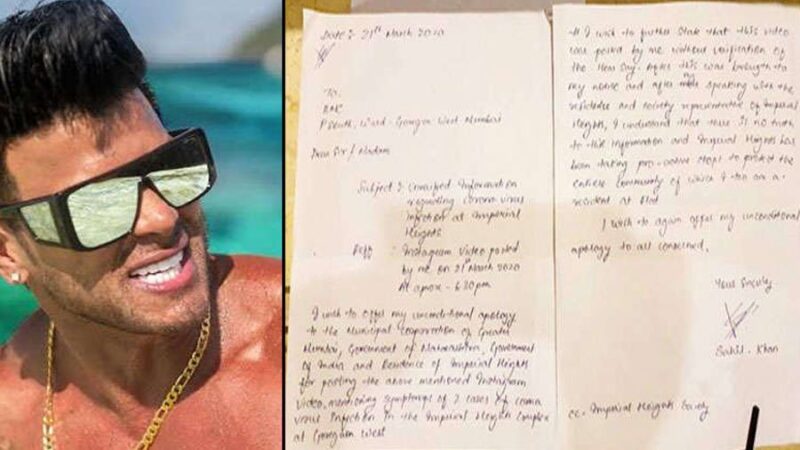 Date : 21st March 2020
To,
BMC
P South, Ward - Goregaon West Mumbai
Dear Sir / Madam
Subject : Information
regarding corona virus
infection at Imperial
Heights
Reff : Instagram Video posted
by me on 21st March 2020
At apox - 6:30pm
I wish to offer my unconditional apology
to the Municipal corporation of Greater
Mumbai, Government of Maharashtra, Government
of India and Residence of Imperial Heights
for posting the above mentioned Instagram
Video, mentioning symptomps of 2 cases of corona
virus Infection in the Imperial Heights Complex
at Goregaon West
I wish to further State that this video
was posted by me without verification of
the Hear Say. After this was brought to
my notice and after speaking with the
residence and society representative of Imperial
Heights, I understand that there is no truth
to this information and Imperial Heights has
been taking pro-active steps to protect the
entire community of which I too am a
resident at
I wish to again offer my unconditional
apology to all concerned.
Your Sincerely
Sahil. Khan
cc. Imperial Heights Society